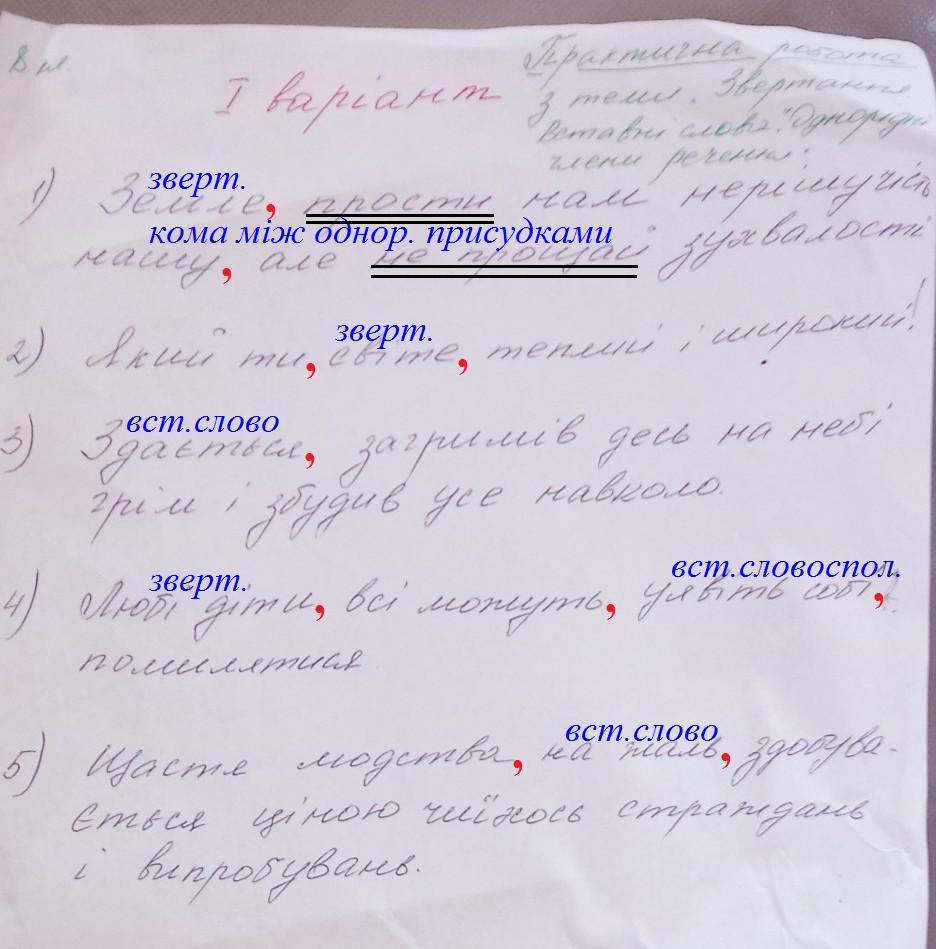 8 кл.
Практична робота
І варіант
з теми. Звертання.
Вставні слова. Однорідні
члени речення.
зверт.
1) Земле, прости нам нерішучість
кома між однор. присудками
нашу, але не прощай зухвалості
зверт.
2) Який ти, світе, теплий і широкий!
вст.слово
3) Здається, загримів десь на небі
грім і збудив усе навколо.
зверт. вст.словоспол.
4) Любі діти, всі можуть, уявіть собі,
помилятися
вст.слово
5) Щастя людства, на жаль, здобува-
ється ціною чиїхось страждань
і випробувань.